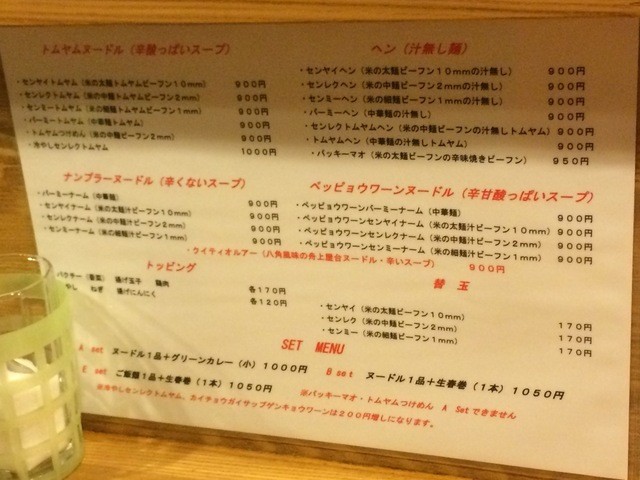 トムヤムヌードル（辛酸っぱいスープ）
・センヤイトムヤム（米の太麺トムヤムビーフン１０ｍｍ） ９００円
・センレクトムヤム（米の中麺トムヤムビーフン２ｍｍ） ９００円
・センミートムヤム（米の細麺トムヤムビーフン１ｍｍ） ９００円
・バーミートムヤム（中華麺トムヤム） ９００円
・トムヤムつけめん（米の中麺ビーフン２ｍｍ） ９００円
・冷やしセンレクトムヤム １０００円
ナンプラーヌードル（辛くないスープ）
・バーミーナーム（中華麺） ９００円
・センヤイナーム（米の太麺汁ビーフン１０ｍｍ） ９００円
・センレクナーム（米の中麺汁ビーフン２ｍｍ） ９００円
・センミーナーム（米の細麺汁ビーフン１ｍｍ） ９００円
ヘン（汁無し麺）
・センヤイヘン（米の太麺ビーフン１０ｍｍの汁無し） ９００円
・センレクヘン（米の中麺ビーフン２ｍｍの汁無し） ９００円
・センミーヘン（米の細麺ビーフン１ｍｍの汁無し） ９００円
・バーミーヘン（中華麺の汁無し） ９００円
・センレクトムヤムヘン（米の中麺ビーフンの汁無しトムヤム） ９００円
・トムヤムヘン（中華麺の汁無しトムヤム） ９００円
・パッキーマオ（米の太麺ビーフンの辛味焼きビーフン） ９５０円
ペッピョウワーンヌードル（辛甘酸っぱいスープ）
・ペッピョウワーンバーミーナーム（中華麺） ９００円
・ペッピョウワーンセンヤイナーム（米の太麺汁ビーフン１０ｍｍ） ９００円
・ペッピョウワーンセンレクナーム（米の中麺汁ビーフン２ｍｍ） ９００円
・ペッピョウワーンセンミーナーム（米の細麺汁ビーフン１ｍｍ） ９００円
・クイティオルアー（八角風味の舟上屋台ヌードル・辛いスープ） ９００円
トッピング
パクチー（香菜） 揚げ玉子 鶏肉 各１７０円
やし ねぎ 揚げにんにく 各１２０円
替 玉
・センヤイ（米の太麺ビーフン１０ｍｍ） １７０円
・センレク（米の中麺ビーフン２ｍｍ） １７０円
・センミー（米の細麺ビーフン１ｍｍ） １７０円
SET MENU
A set ヌードル１品＋グリーンカレー（小）１０００円
B set ヌードル１品＋生春巻（１本）１０５０円
E set ご飯類１品＋生春巻（１本）１０５０円
※パッキーマオ・トムヤムつけめん A Setできません
※冷やしセンレクトムヤム、カイチョウガイサップゲンキョウワーンは２００円増しになります。